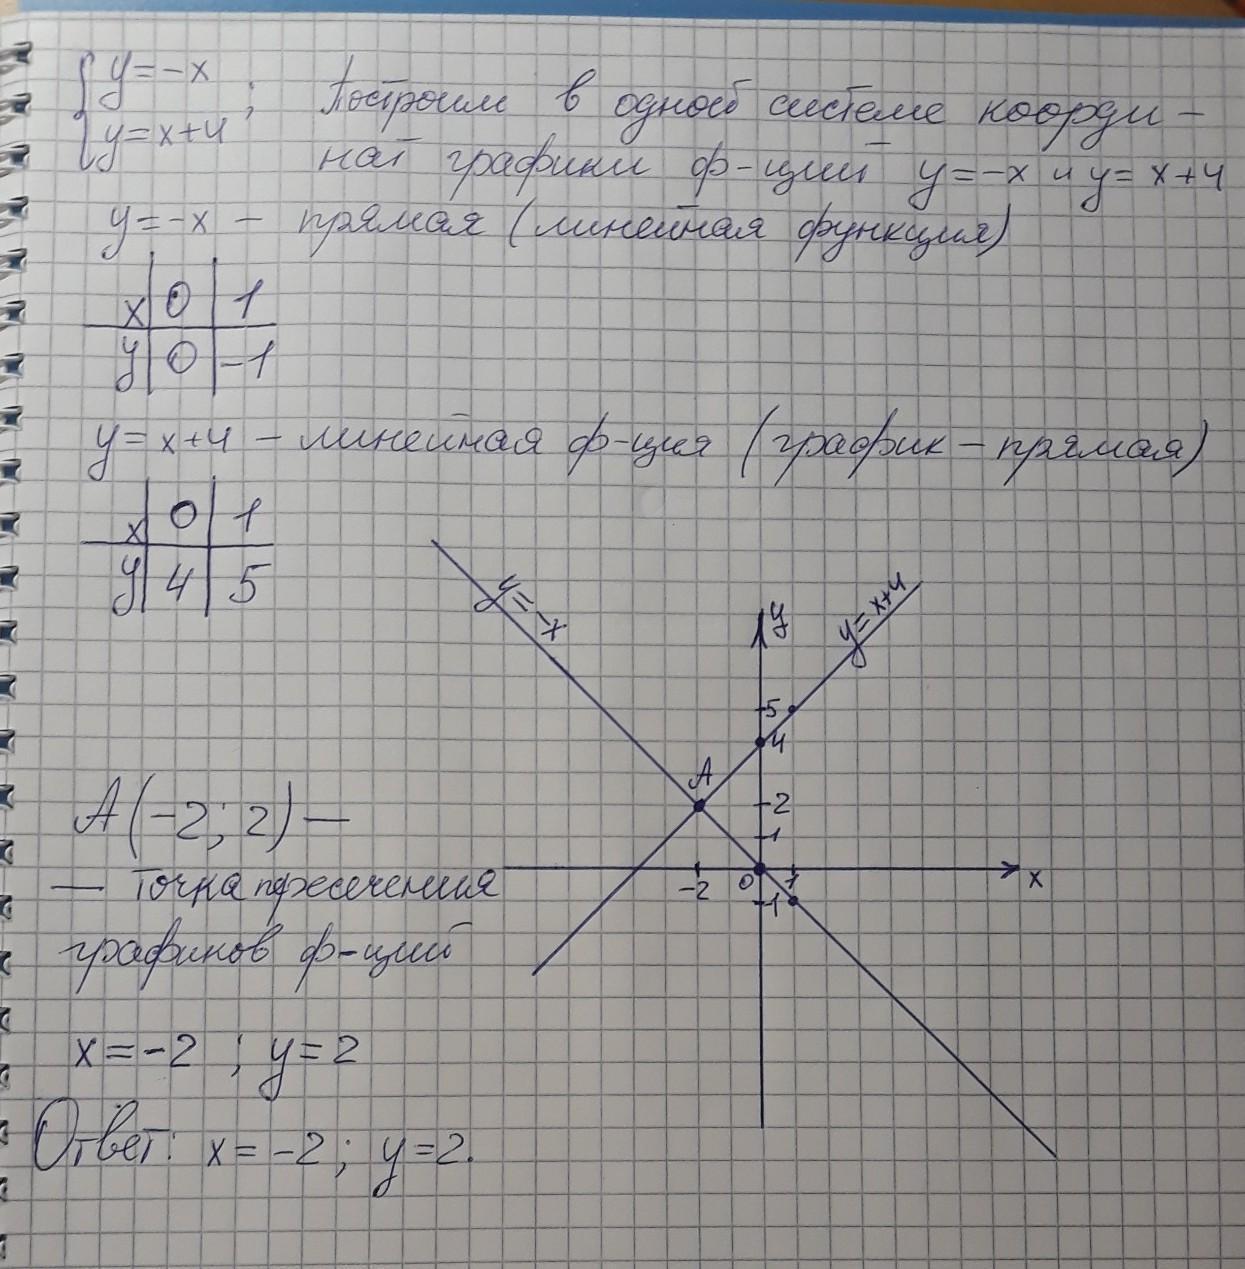 { y=-x
y=x+4 ; Построим в одной системе коорди-
нат графики ф-ций y=-x и y=x+4
y=-x - прямая (линейная функция)
x 0 1
y 0 -1
y=x+4 - линейная ф-ция (график - прямая)
x 0 1
y 4 5
y=-x
y
y=x+4
5
4
A
2
1
-2 0 1 x
-1
A(-2; 2) —
— точка пересечения
графиков ф-ций
x=-2 ; y=2
Ответ: x=-2; y=2.